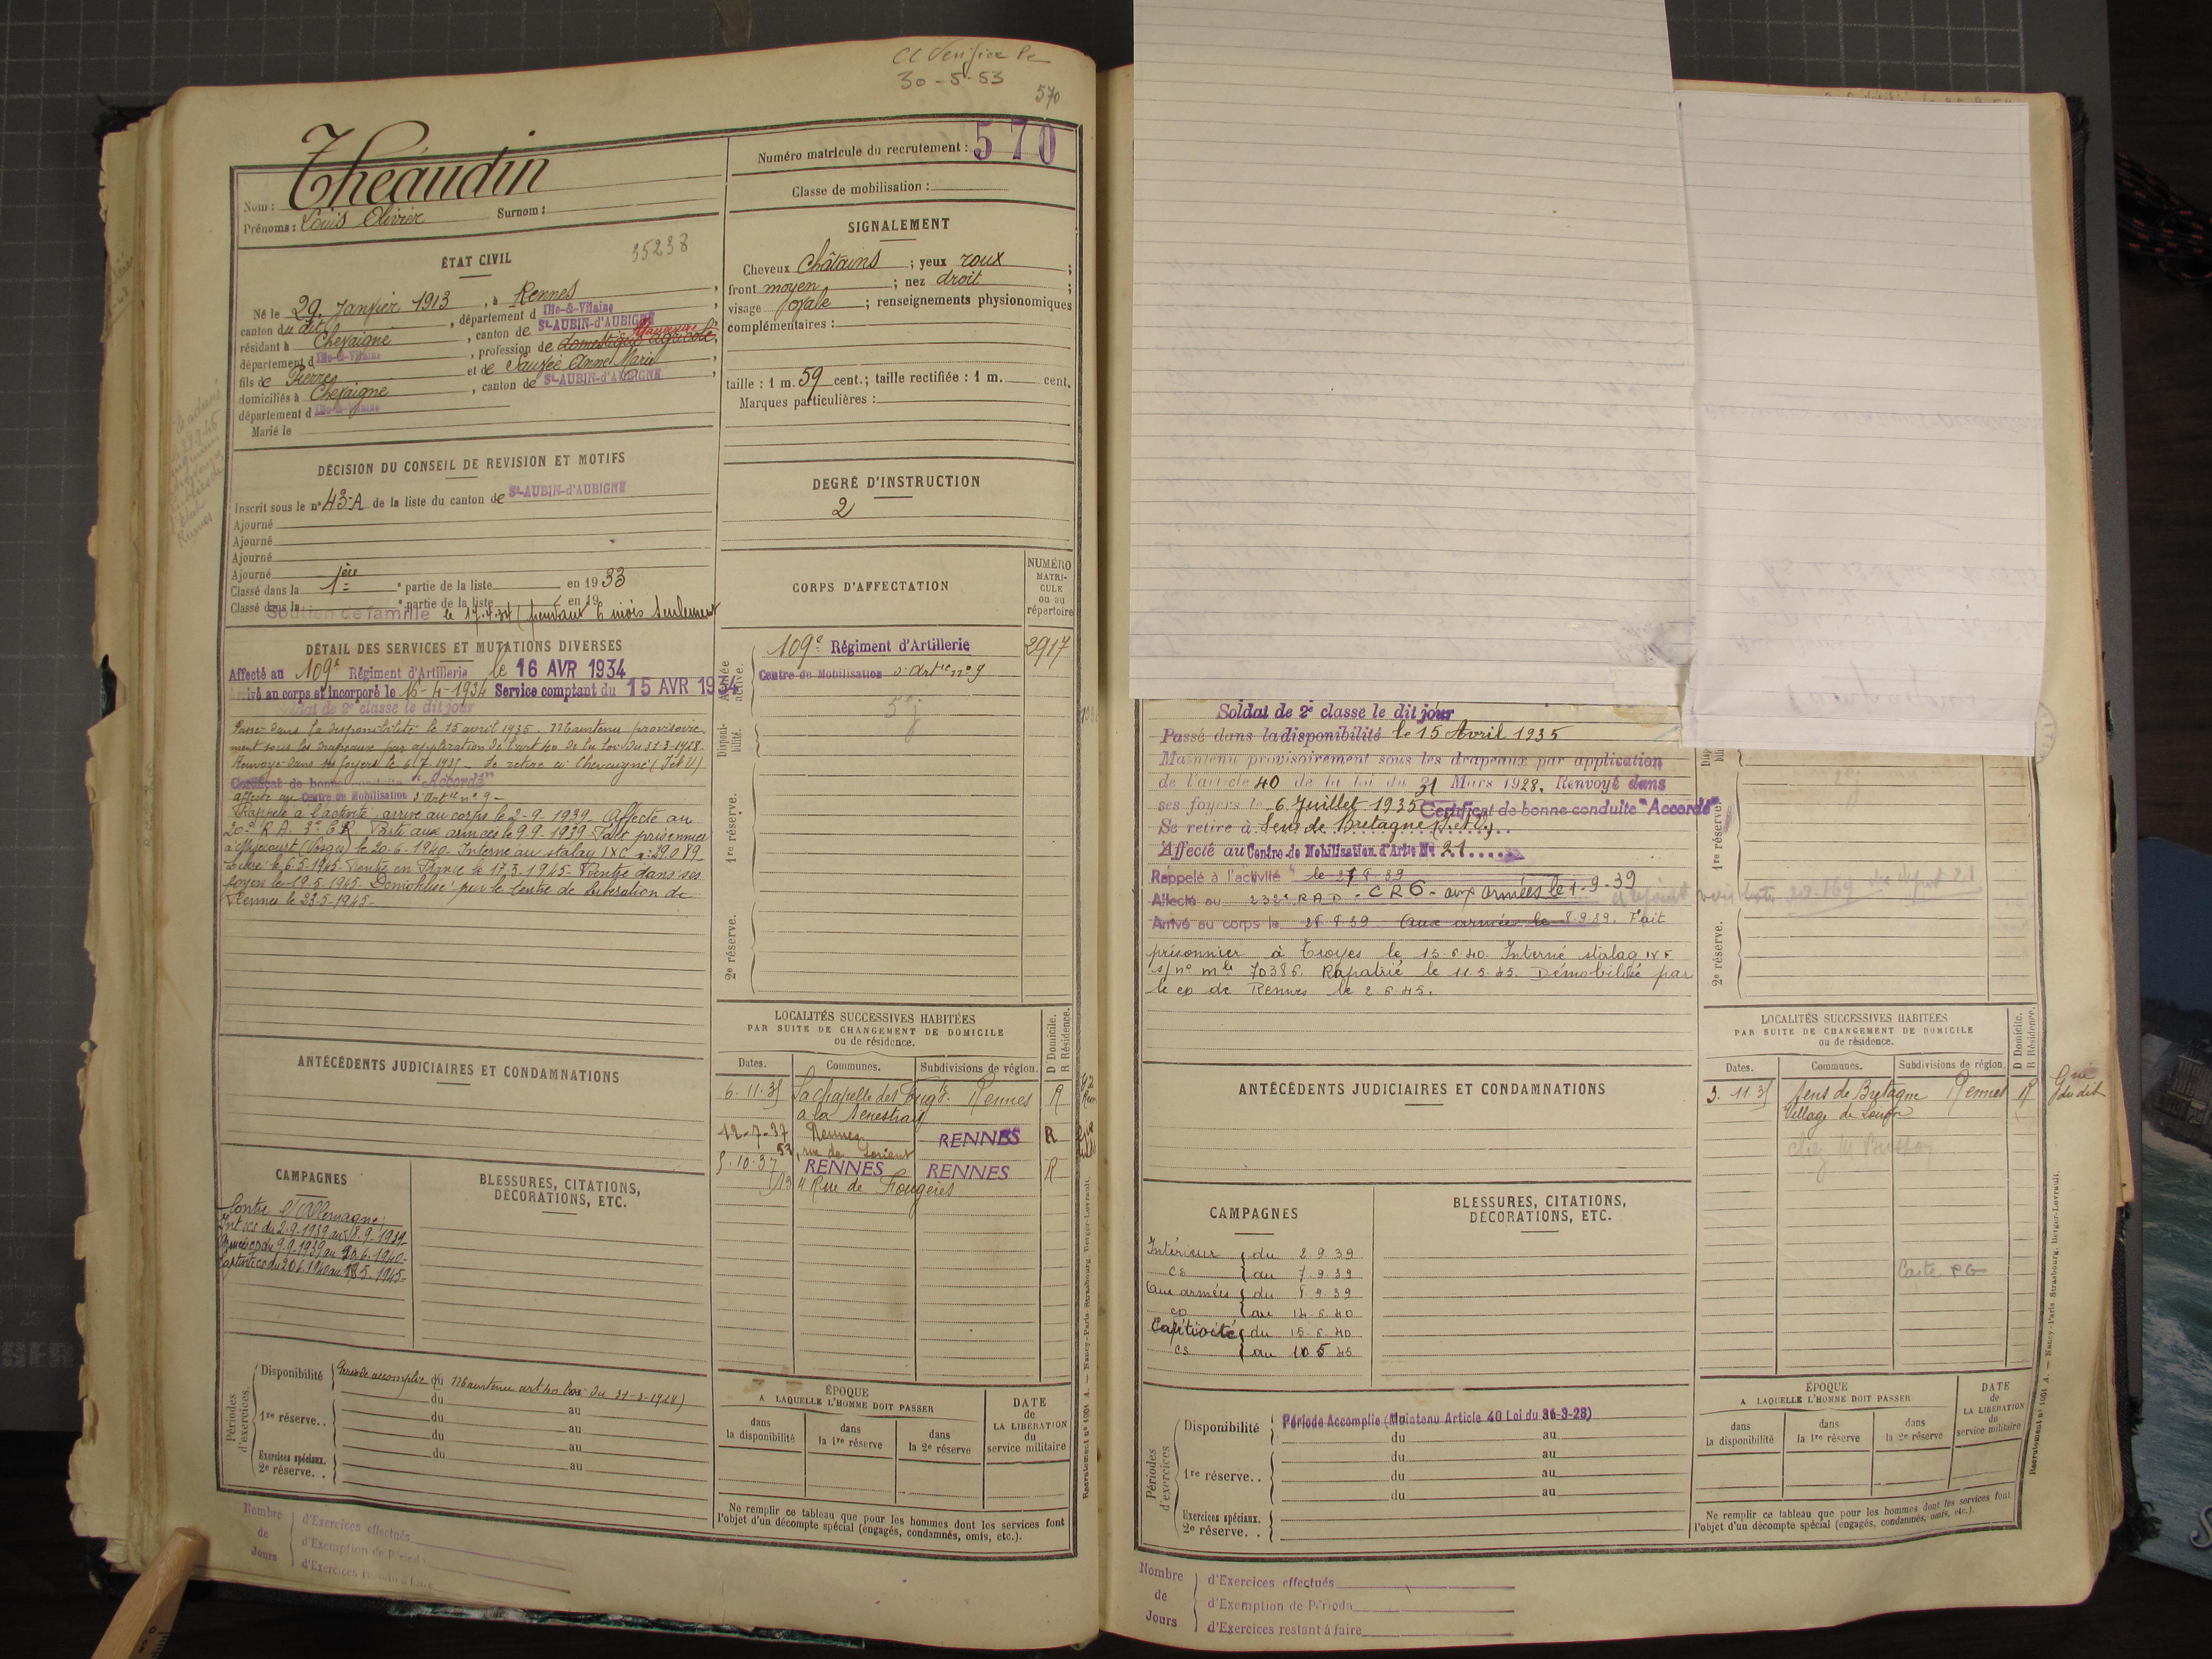 CC Vérifiée Pc
30-5-53
570
Nom : Théaudin
Prénoms : Louis Olivier Surnom :
Numéro matricule du recrutement : 570
Classe de mobilisation :
ÉTAT CIVIL
35238
Né le 29 Janvier 1913, à Rennes,
canton du dit, département d Ille-&-Vilaine,
résidant à Chevaigné, canton de St-AUBIN-d'AUBIGNÉ
département d Ille-&-Vilaine, profession de domestique agricole, Manœuvre
fils de Pierre et de Sauvée Anne Marie,
domiciliés à Chevaigné, canton de St-AUBIN-d'AUBIGNÉ,
département d Ille-&-Vilaine
Marié le
SIGNALEMENT
Cheveux Châtains ; yeux roux ;
front moyen ; nez droit ;
visage ovale ; renseignements physionomiques
complémentaires :
taille : 1 m. 59 cent.; taille rectifiée : 1 m. cent.
Marques particulières :
DÉCISION DU CONSEIL DE REVISION ET MOTIFS
Inscrit sous le n° 43-A de la liste du canton de St-AUBIN-d'AUBIGNÉ
Ajourné
Ajourné
Ajourné
Ajourné
Classé dans la 1ère partie de la liste en 1933
Classé dans la partie de la liste en 19
Soutien de famille le 17.4.34 (pendant 6 mois seulement
DEGRÉ D'INSTRUCTION
2
DÉTAIL DES SERVICES ET MUTATIONS DIVERSES
Affecté au 109e Régiment d'Artillerie le 16 AVR 1934
Arrivé au corps et incorporé le 16-4-1934 Service comptant du 15 AVR 1934
Soldat de 2e classe le dit jour
Passé dans la disponibilité le 15 avril 1935. Maintenu provisoire-
ment sous les drapeaux par application de l'art 40 de la loi du 31-3-1928.
Renvoyé dans ses foyers le 6.7.1935. Se retire à Chevaigné (I et V)
Certificat de bonne conduite "Accordé"
affecté au Centre de Mobilisation d'Artie n° 9 -
Rappelé à l'activité, arrivé au corps le 2-9-1939. Affecté au
20e R.A. 3e CR Parti aux armées le 9.9.1939. Fait prisonnier
à (Vosges) le 20-6-1940. Interné au stalag IX C n° 29.089
Libéré le 6-5-1945. Rentré en France le 17.5.1945. Rentré dans ses
foyers le 19.5.1945. Démobilisé par le Centre de libération de
Rennes le 23-5-1945-
CORPS D'AFFECTATION
NUMÉRO MATRICULE ou au répertoire
Armée active.
109e Régiment d'Artillerie 2917
Centre de Mobilisation d'Artie n° 9
Disponibilité.
1re réserve.
2e réserve.
LOCALITÉS SUCCESSIVES HABITÉES
PAR SUITE DE CHANGEMENT DE DOMICILE
ou de résidence.
D Domicile. R Résidence.
Dates. Communes. Subdivisions de région.
6.11.35 La Chapelle des Fougtz Rennes R
à la Senestrais
12-7-37 Rennes RENNES R
53, rue de Lorient
5.10.37 RENNES RENNES R
113 " Rue de Fougères
ANTÉCÉDENTS JUDICIAIRES ET CONDAMNATIONS
CAMPAGNES
Contre l'Allemagne :
Int ics du 2.9.1939 au 8.9.1939
Armées cs du 9.9.1939 au 20.6.1940-
Captivité cs du 20.6.1940 au 18.5.1945-
BLESSURES, CITATIONS,
DÉCORATIONS, ETC.
Périodes d'exercices.
Disponibilité Période accomplie (Maintenu art 40 loi du 31-3-1928)
du au
1re réserve.. du au
du au
Exercices spéciaux. du au
2e réserve. . au
ÉPOQUE
A LAQUELLE L'HOMME DOIT PASSER
dans la disponibilité
dans la 1re réserve
dans la 2e réserve
DATE de LA LIBÉRATION du service militaire
Ne remplir ce tableau que pour les hommes dont les services font
l'objet d'un décompte spécial (engagés, condamnés, omis, etc.).
Recrutement n° 1001 A. — Nancy-Paris-Strasbourg. Berger-Levrault.
Nombre de Jours
d'Exercices effectués
d'Exemption de Période
d'Exercices restant à faire
Soldat de 2e classe le dit jour
Passé dans la disponibilité le 15 Avril 1935
Maintenu provisoirement sous les drapeaux par application
de l'article 40 de la loi du 31 Mars 1928. Renvoyé dans
ses foyers le 6 Juillet 1935 Certificat de bonne conduite "Accordé"
Se retire à Sens de Bretagne (I. et V.)
Affecté au Centre de Mobilisation d'Artie N° 21
Rappelé à l'activité le 27 8 39
Affecté au 232e R.A.D - CR6 - aux armées le 1-9-39
Arrivé au corps le 28.8.39 Aux armées le 8.9.39. Fait
prisonnier à Troyes le 15.6.40. Interné stalag IV F
s/ n° mle 70386. Rapatrié le 11.5.45. Démobilisé par
le cp de Rennes le 2.6.45.
1re réserve.
2e réserve.
LOCALITÉS SUCCESSIVES HABITÉES
PAR SUITE DE CHANGEMENT DE DOMICILE
ou de résidence.
D Domicile. R Résidence.
Dates. Communes. Subdivisions de région.
3.11.35 Sens de Bretagne Rennes R Gné du dit
Village de
Carte PG
ANTÉCÉDENTS JUDICIAIRES ET CONDAMNATIONS
CAMPAGNES
Intérieur { du 2 9 39
cs { au 7.9.39
Aux armées { du 8 9 39
cp { au 14.6.40
Captivité { du 15.6.40
cs { au 10 5 45
BLESSURES, CITATIONS,
DÉCORATIONS, ETC.
Périodes d'exercices
Disponibilité Période Accomplie (Maintenu Article 40 Loi du 31-3-28)
du au
du au
1re réserve.. du au
du au
Exercices spéciaux.
2e réserve. .
ÉPOQUE
A LAQUELLE L'HOMME DOIT PASSER
dans la disponibilité
dans la 1re réserve
dans la 2e réserve
DATE de LA LIBÉRATION du service militaire
Ne remplir ce tableau que pour les hommes dont les services font
l'objet d'un décompte spécial (engagés, condamnés, omis, etc.).
Recrutement n° 1001 A. — Nancy-Paris-Strasbourg. Berger-Levrault.
Nombre de Jours
d'Exercices effectués
d'Exemption de Période
d'Exercices restant à faire